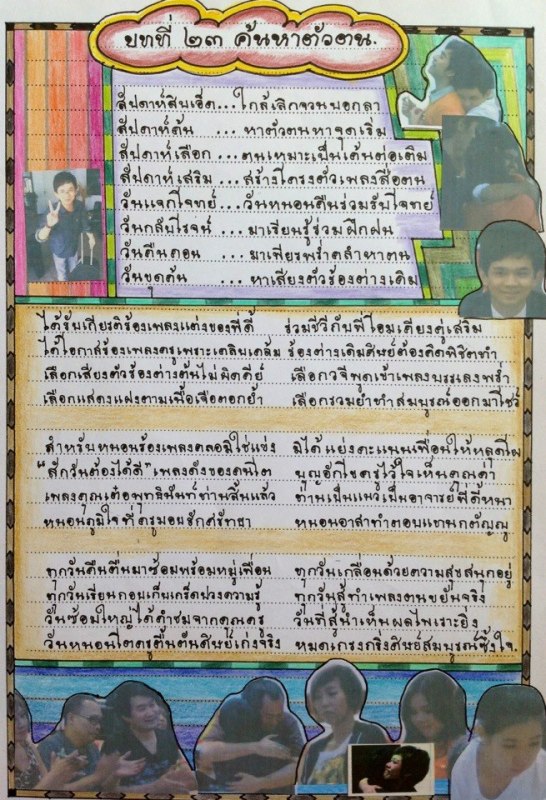 บทที่ ๒๓ ค้นหาตัวตน.
สัปดาห์สิบเอ็ด...ใกล้เลิกจวนบอกลา
สัปดาห์ต้น ...หาตัวตนหาจุดเริ่ม
สัปดาห์เลือก ...ตนเหมาะเป็นเต้นต่อเติม
สัปดาห์เสริม ...สร้างโครงตัวเพลงสื่อตน
วันแจกโจทย์ ...วันหนอนคืนร่วมรับโจทย์
วันกลับไรจน์ ...มาเรียนรู้ร่วมฝึกฝน
วันคืนคอน ...มาเพียรพร่ำคลำหาตน
วันขุดค้น ...หาเสียงตัวร้องต่างเดิม
ได้รับเกียรติร้องเพลงแต่งของพี่ดี้ ร่วมชีวีกับพี่โอมเคียงคู่เสริม
ได้โอกาสร้องเพลงครูเพราะเคลิบเคล้ม ร้องต่างเดิมศิษย์ต้องคิดพิชิตทำ
เลือกเสียงตัวร้องต่างต้นไม่ผิดคีย์ เลือกวจีพูดเข้าเพลงบรรเลงพร่ำ
เลือกแสดงแฝงตามเนื้อเจือตอกย้ำ เลือกรวมยำทำสมบูรณ์ออกมาโชว์
สำหรับหนอนร้องเพลงตลอดมิใช่แข่ง มิได้แย่งคะแนนเพื่อนให้หลุดโผ
"สักวันต้องได้ดี" เพลงดังของคนโต บุญอักโขครูไว้ใจเห็นคุณค่า
เพลงคุณเต๋อพุทธินันท์ท่านสิ้นแล้ว ท่านเป็นแนวเป็นอาจารย์พี่ดี้หนา
หนอนภูมิใจที่ครูมอบรักศรัทธา หนอนอาสาทำตอบแทนกตัญญู
ทุกวันคืนตื่นมาซ้อมพร้อมหมู่เพื่อน ทุกวันเกลื่อนด้วยความสุขสนุกอยู่
ทุกวันเรียนกอบเก็บเกร็ดปวงความรู้ ทุกวันสู้ทำเพลงตนขยันจริง
วันซ้อมใหญ่ได้คำชมจากคุณครู วันที่สู้นำเห็นผลไพเราะยิ่ง
วันหนอนโตครูตื่นตันศิษย์เก่งจริง หมดเกรงกริ่งศิษย์สมบูรณ์ซึ้งใจ.